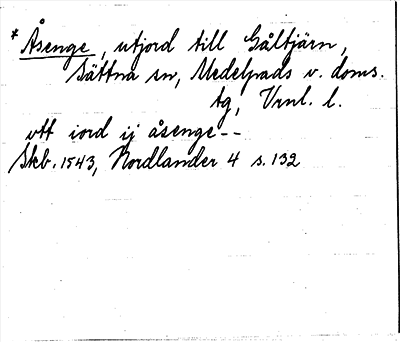 * Åsenge, utjord till Gåltjärn,
Sättna sn, Medelpads v. doms.
tg, Vrnl. l.
vtt iord ij åsenge--
Skb. 1543, Nordlander 4 s. 132